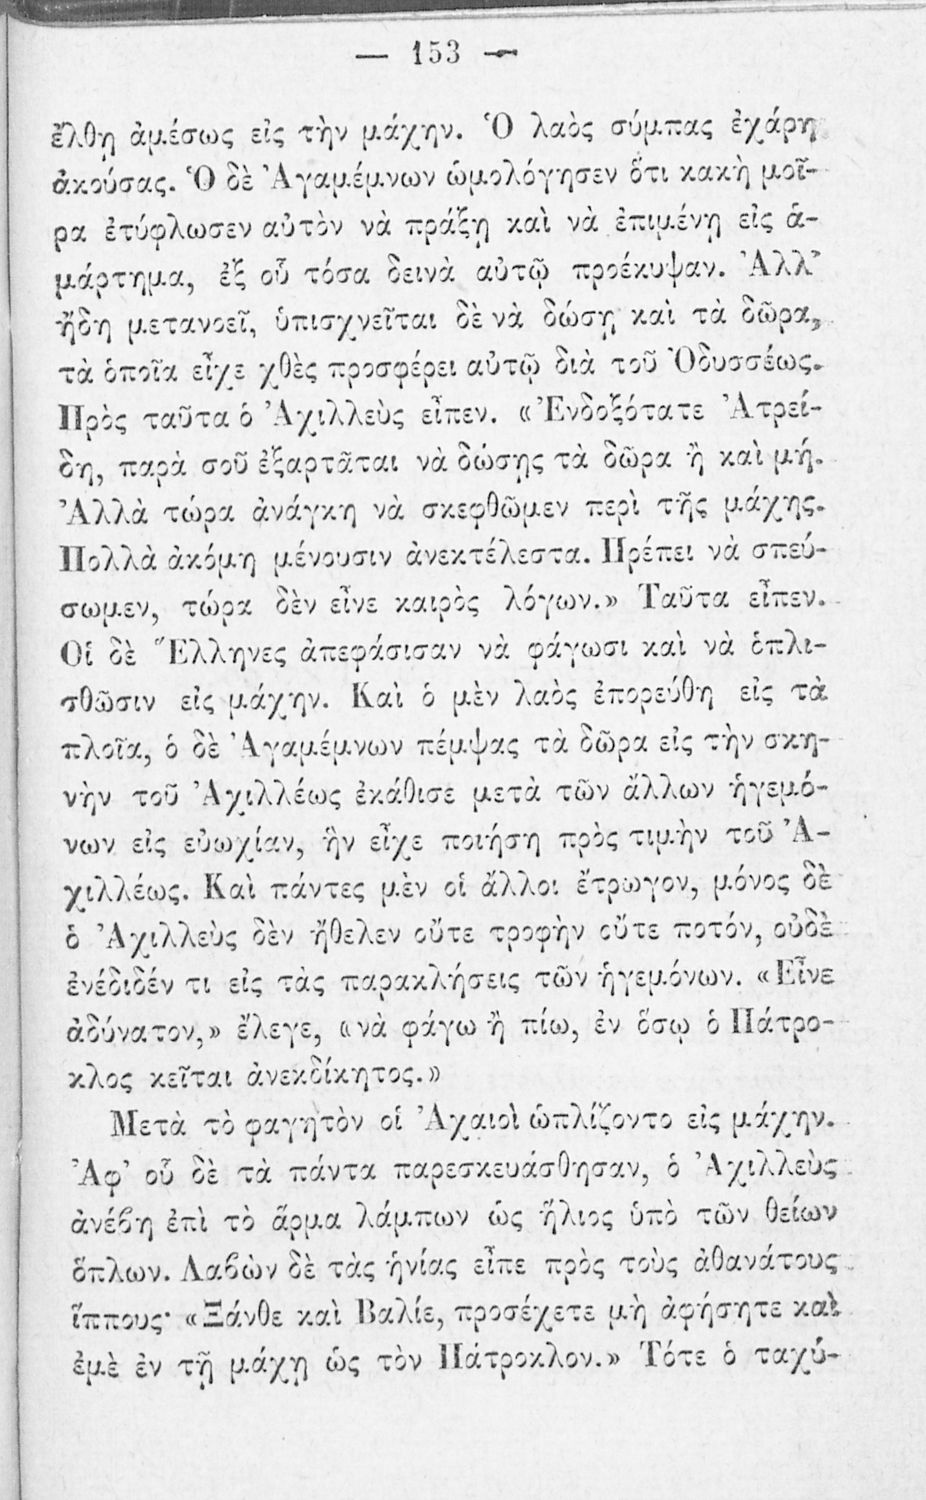 — 153 —
ἔλθῃ ἀμέσως εἰς τὴν μάχην. Ὁ λαὸς σύμπας ἐχάρη
ἀκούσας. Ὁ δὲ Ἀγαμέμνων ὡμολόγησεν ὅτι κακὴ μοῖ-
ρα ἐτύφλωσεν αὐτὸν νὰ πράξῃ καὶ νὰ ἐπιμένῃ εἰς ἁ-
μάρτημα, ἐξ οὗ τόσα δεινὰ αὐτῷ προέκυψαν. Ἀλλ’
ἤδη μετανοεῖ, ὑπισχνεῖται δὲ νὰ δώσῃ καὶ τὰ δῶρα,
τὰ ὁποῖα εἶχε χθὲς προσφέρει αὐτῷ διὰ τοῦ Ὀδυσσέως.
Πρὸς ταῦτα ὁ Ἀχιλλεὺς εἶπεν. «Ἐνδοξότατε Ἀτρεί-
δη, παρὰ σοῦ ἐξαρτᾶται νὰ δώσῃς τὰ δῶρα ἢ καὶ μή.
Ἀλλὰ τώρα ἀνάγκη νὰ σκεφθῶμεν περὶ τῆς μάχης.
Πολλὰ ἀκόμη μένουσιν ἀνεκτέλεστα. Πρέπει νὰ σπεύ-
σωμεν, τώρα δὲν εἶνε καιρὸς λόγων.» Ταῦτα εἶπεν.
Οἱ δὲ Ἕλληνες ἀπεφάσισαν νὰ φάγωσι καὶ νὰ ὁπλι-
σθῶσιν εἰς μάχην. Καὶ ὁ μὲν λαὸς ἐπορεύθη εἰς τὰ
πλοῖα, ὁ δὲ Ἀγαμέμνων πέμψας τὰ δῶρα εἰς τὴν σκη-
νὴν τοῦ Ἀχιλλέως ἐκάθισε μετὰ τῶν ἄλλων ἡγεμό-
νων εἰς εὐωχίαν, ἣν εἶχε ποιήση πρὸς τιμὴν τοῦ Ἀ-
χιλλέως. Καὶ πάντες μὲν οἱ ἄλλοι ἔτρωγον, μόνος δὲ
ὁ Ἀχιλλεὺς δὲν ἤθελεν οὔτε τροφὴν οὔτε ποτόν, οὐδὲ
ἐνέδιδέν τι εἰς τὰς παρακλήσεις τῶν ἡγεμόνων. «Εἶνε
ἀδύνατον,» ἔλεγε, «νὰ φάγω ἢ πίω, ἐν ὅσῳ ὁ Πάτρο-
κλος κεῖται ἀνεκδίκητος.»
Μετὰ τὸ φαγητὸν οἱ Ἀχαιοὶ ὡπλίζοντο εἰς μάχην.
Ἀφ’ οὗ δὲ τὰ πάντα παρεσκευάσθησαν, ὁ Ἀχιλλεὺς
ἀνέβη ἐπὶ τὸ ἅρμα λάμπων ὡς ἥλιος ὑπὸ τῶν θείων
ὅπλων. Λαβὼν δὲ τὰς ἡνίας εἶπε πρὸς τοὺς ἀθανάτους
ἵππους· «Ξάνθε καὶ Βαλίε, προσέχετε μὴ ἀφήσητε καὶ
ἐμὲ ἐν τῇ μάχῃ ὡς τὸν Πάτροκλον.» Τότε ὁ ταχύ-